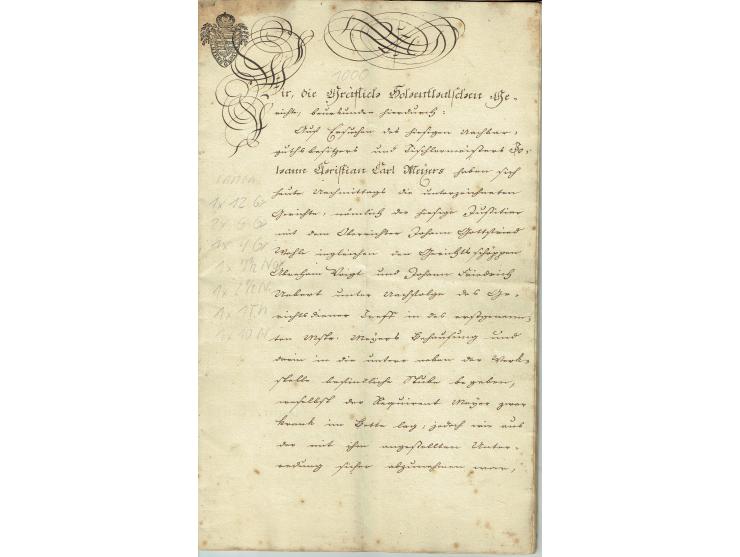 1000
Wir, die Gräflich Hohenthalschen Ge-
richte, beurkunden hierdurch:
Auf Ersuchen des hiesigen Nachbar,
guthsbesitzers und Tischlermeisters Jo-
hann Christian Carl Meyers haben sich
heute Nachmittags die unterzeichneten
Gerichte, nämlich der hiesige Justitiar
mit dem Oberrichter Johann Gottfried
Wohle ingleichen den Gerichtsschöppen
Abraham Voigt und Johann Friedrich
Nebert unter Nachfolge des Ge-
richtsdiener in des erstgenann-
ten Mstr. Meyers Behausung und
darin in die untere neben der Werk-
stelle befindliche Stube begeben,
woselbst der Requirent Meyer zwar
krank im Bette lag, jedoch wie aus
der mit ihm angestellten Unter-
redung sicher abzunehmen war,
1x 12 Gr
1x 4 Gr